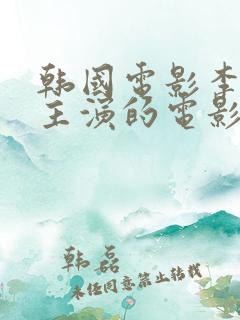 韩國电影李
主演的电影
韩磊
未经同意禁止转载